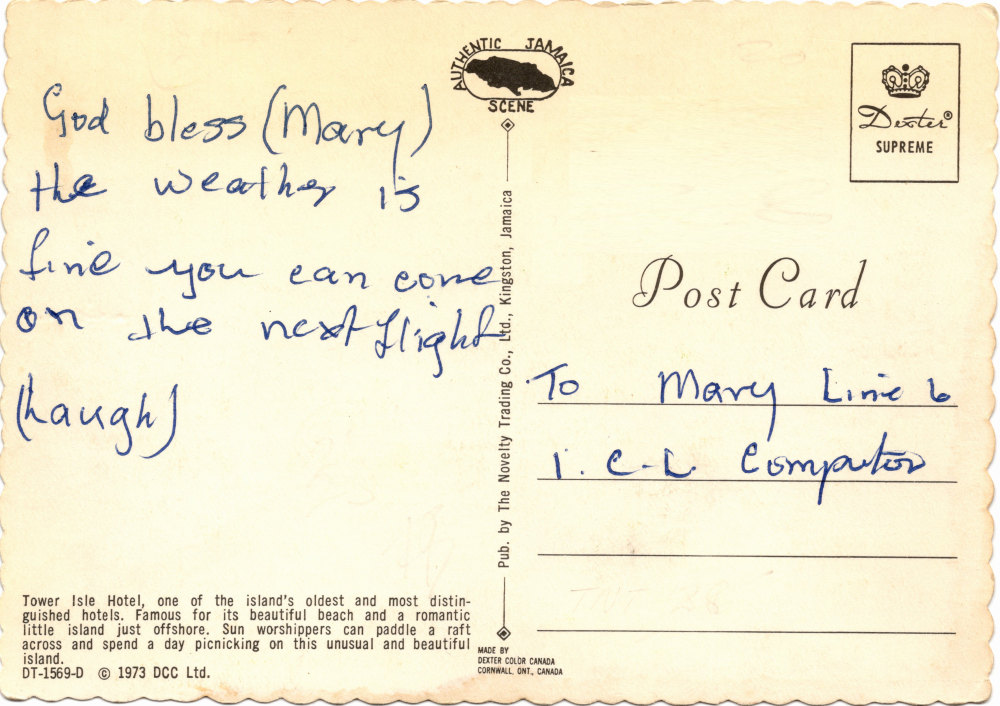 God bless (Mary)
the weather is
fine you can come
on the next flight
(Laugh)
Tower Isle Hotel, one of the island's oldest and most distin-
guished hotels. Famous for its beautiful beach and a romantic
little island just offshore. Sun worshippers can paddle a raft
across and spend a day picnicking on this unusual and beautiful
island.
DT-1569-D © 1973 DCC Ltd.
AUTHENTIC JAMAICA
SCENE
Pub. by The Novelty Trading Co., Ltd., Kingston, Jamaica
MADE BY
DEXTER COLOR CANADA
CORNWALL, ONT., CANADA
Dexter®
SUPREME
Post Card
To Mary Line 6
I. C. L. Computor